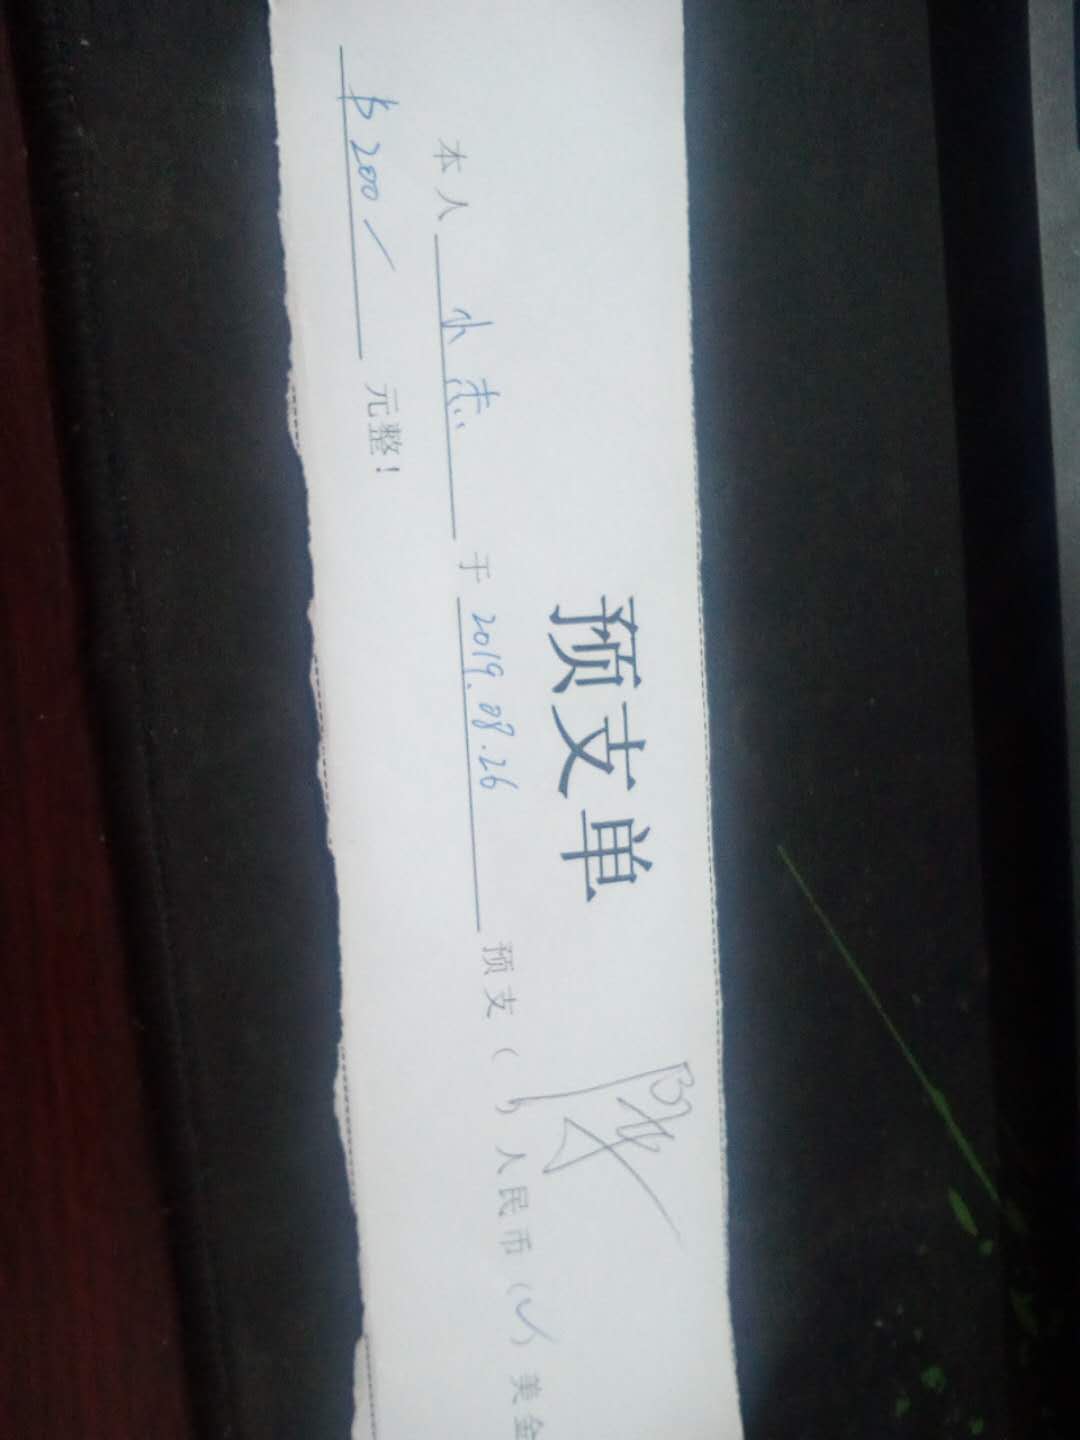 预支单
本人 小杰 于 2019.08.26 预支 ( ) 人民币 (✓) 美金
$200/ 元整!